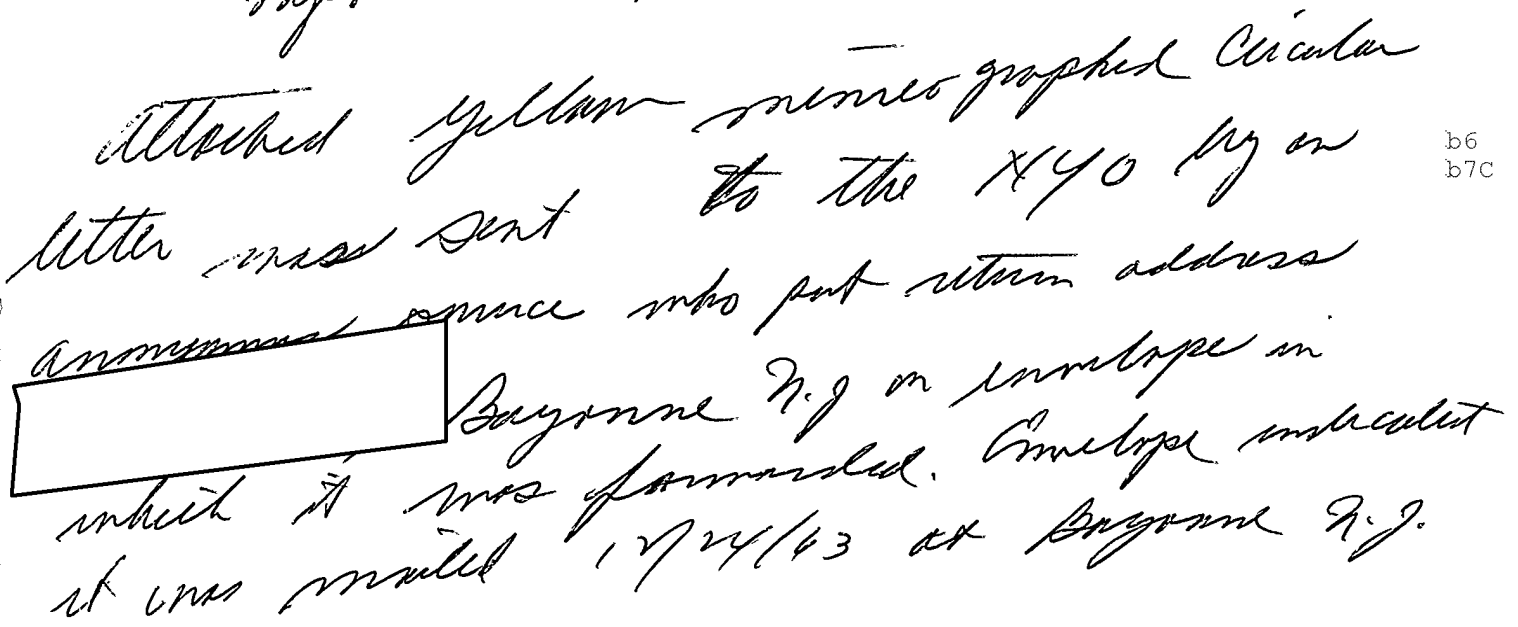 Attached yellow mimeographed Circular
letter was sent to the NYO by an
anonymous source who put return address
Bayonne N.J on envelope in
which it was forwarded. Envelope indicates
it was mailed 12/24/63 at Bayonne N.J.
b6
b7C